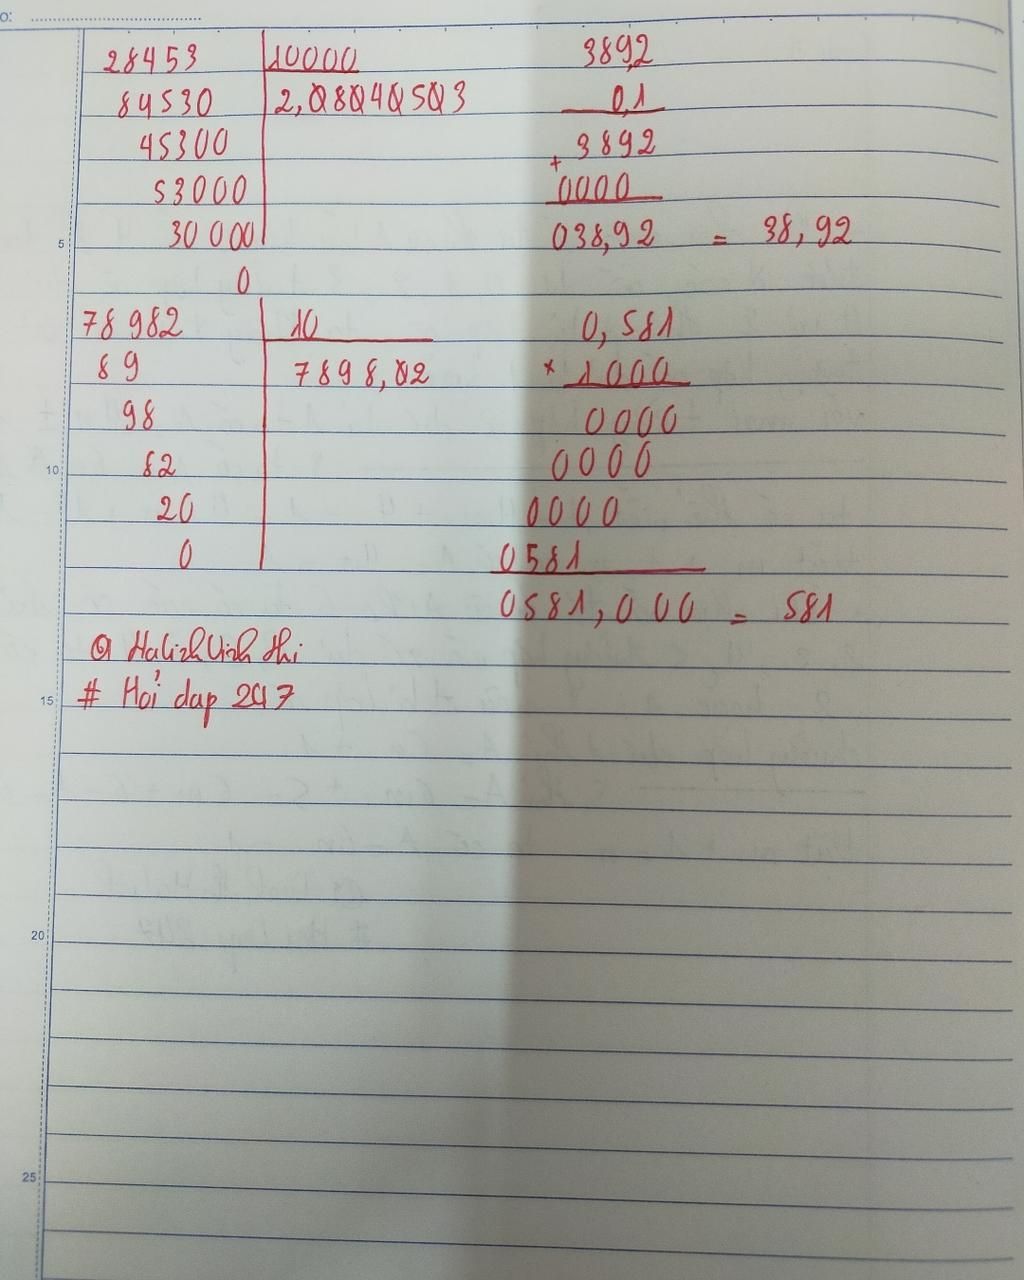 28453 10000
84530 2,08040503
45300
53000
30 000
0
389,2
0,1
3892
+
0000
038,92 = 38,92
78 982 10
89 7898,02
98
82
20
0
0,581
× 1000
0000
0000
0000
0581
0581,000 = 581
# Hỏi dap 247
5
10
15
20
25